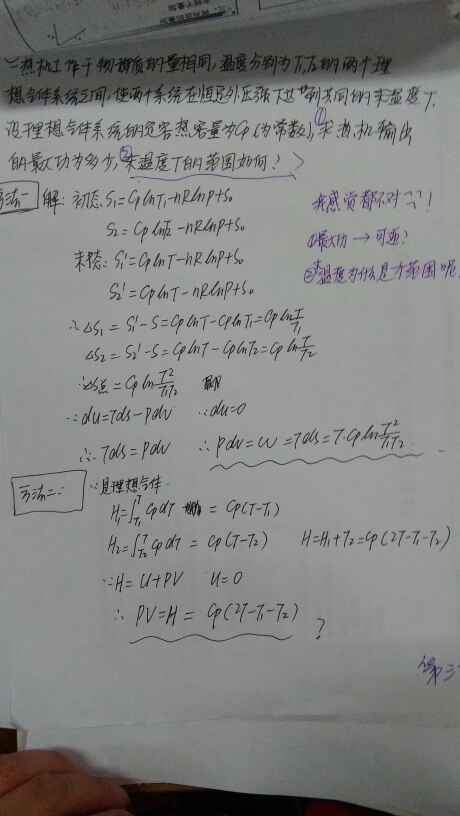 一热机工作于物质的量相同,温度分别为T₁,T₂的两个理
想气体系统之间,使两个系统在恒定外压强下达到共同的末温度T,
设理想气体系统的定容热容量为Cp(为常数),①求热机输出
的最大功为多少,②末温度T的范围如何?
方法一 解:初态:S₁=CplnT₁-nRlnp+S₀
S₂=CplnT₂-nRlnp+S₀
末态:S₁'=CplnT-nRlnp+S₀
S₂'=CplnT-nRlnp+S₀
∴ΔS₁=S₁'-S=CplnT-CplnT₁=Cpln T/T₁
ΔS₂=S₂'-S=CplnT-CplnT₂=Cpln T/T₂
=Cpln T²/T₁T₂
∵du=Tds-Pdv ∵du=0
∴Tds=Pdv ∴Pdv=W=Tds=T·Cpln T²/T₁T₂
我感觉都不对!
①最大功→可逆?
②末温度为什么是个范围呢
方法二: ∵是理想气体
H₁=∫T₁T CpdT =Cp(T-T₁)
H₂=∫T₂T CpdT =Cp(T-T₂) H=H₁+T₂=Cp(2T-T₁-T₂)
∵H=U+PV U=0
∴PV=H=Cp(2T-T₁-T₂) ?
第三